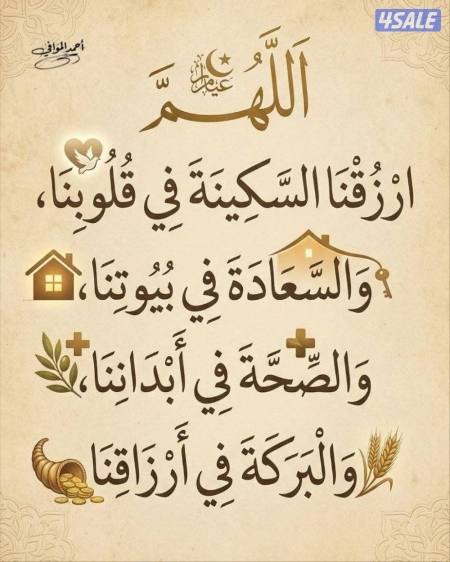 4SALE
أحمد الموافي
اَللَّهُمَّ
ارْزُقْنَا السَّكِينَةَ فِي قُلُوبِنَا،
وَالسَّعَادَةَ فِي بُيُوتِنَا،
وَالصِّحَّةَ فِي أَبْدَانِنَا،
وَالْبَرَكَةَ فِي أَرْزَاقِنَا